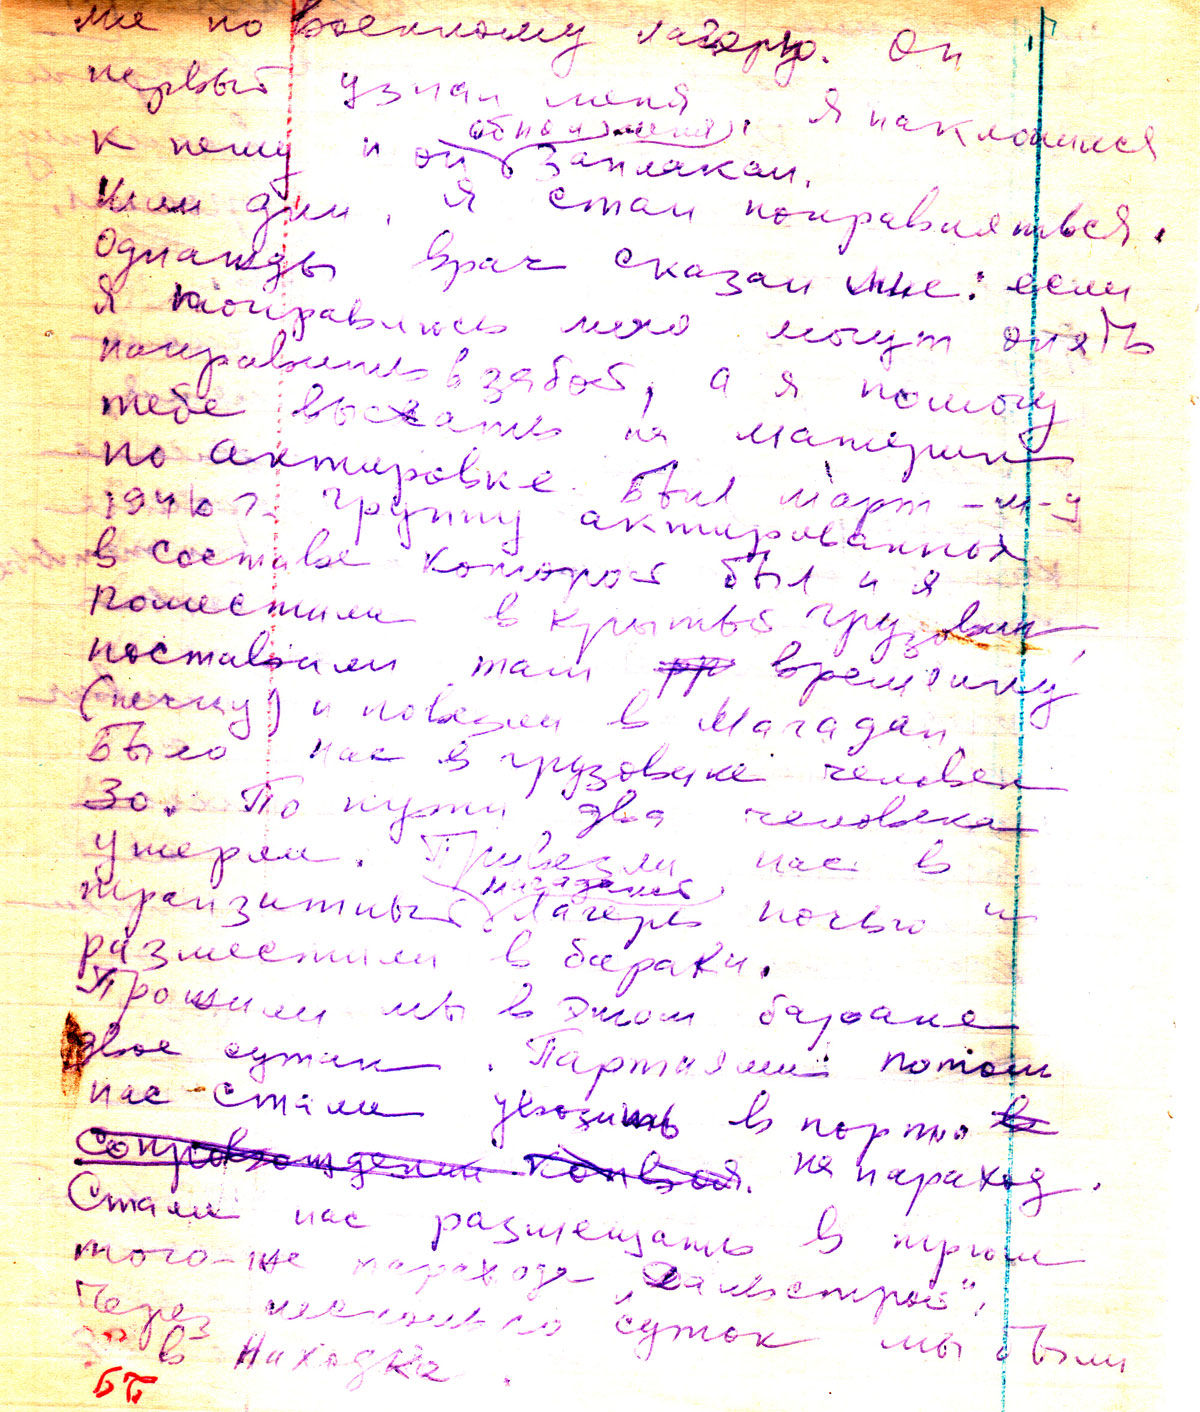 мне по военному лагерю. Он
первый узнал меня. Я наклонился
обнял меня
к нему и он заплакал.
Шли дни, я стал поправляться.
Однажды врач сказал мне: если
я поправлюсь меня могут опять
направить в забой, а я помогу
тебе выехать на материк
по актировке. Был март м-ц
1946 г. группу актированных
в составе которой был и я
поместили в крытый грузовик,
поставили там времянку
(печку) и повезли в Магадан.
Было нас в грузовике человек
30. По пути два человека
умерли. Привезли нас в
магаданский
транзитный лагерь ночью и
разместили в бараки.
Прожили мы в этом бараке
двое суток. Партиями потом
нас стали увозить в порт в
сопровождении конвоя. на параход.
Стали нас размещать в трюм
того-же парахода "Дальстрой".
Через несколько суток мы были
в Находке.
БП